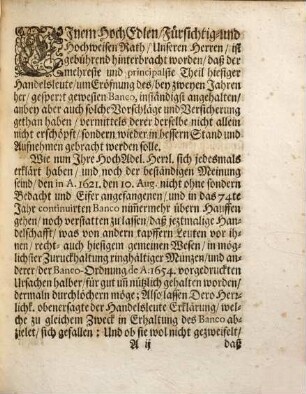 EInem HochEdlen/Fürsichtig-und
Hochweisen Rath/Unseren Herren/ist
gebührend hinterbracht worden/daß der
mehreste und principalste Theil hiesiger
Handelsleute/um Eröfnung des/bey zweyen Jahren
her/gesperrt gewesten Banco, inständigst angehalten/
anbey aber auch solche Vorschläge und Versicherung
gethan haben/vermittels derer derselbe nicht allein
nicht erschöpft/sondern wieder in bessern Stand und
Aufnehmen gebracht werden solle.
Wie nun Ihre HochAdel. Herrl. sich jedesmals
erklärt haben/und noch der beständigen Meinung
seind/den in A. 1621. den 10. Aug. nicht ohne sondern
Bedacht und Eifer angefangenen/und in das 74te
Jahr continuirten Banco nimmermehr übern Hauffen
gehen/noch verstatten zu lassen/daß jeztmalige Han-
delschafft/was von andern tapffern Leuten vor ih-
nen/recht- auch hiesigem gemeinen Wesen/in mög-
lichster Zuruckhaltung ringhältiger Münzen/und an-
derer der Banco-Ordnung de A. 1654. vorgedruckten
Ursachen halber/für gut uñ nützlich gehalten worden/
dermaln durchlöchern möge; Also lassen Dero Herz-
lichk. obenersagte der Handelsleute Erklärung/wel-
che zu gleichem Zweck in Erhaltung des Banco ab-
zielet/sich gefallen: Und ob sie wol nicht gezweifelt/
A ij daß